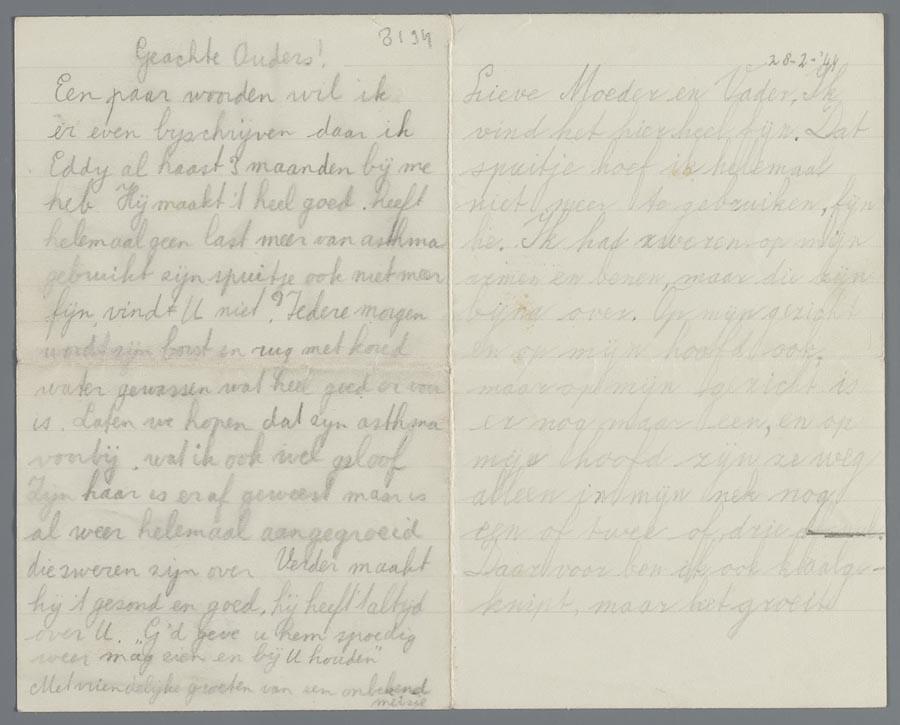 3194
Geachte Ouders!
Een paar woorden wil ik
er even byschrijven daar ik
Eddy al haast 3 maanden bij me
heb. Hij maakt 't heel goed. heeft
helemaal geen last meer van asthma
gebruikt zijn spuitje ook niet meer
fijn, vindt U niet? Iedere morgen
wordt zijn borst en rug met koud
water gewassen wat heel goed er voor
is. Laten we hopen dat zijn asthma
voorbij, wat ik ook wel geloof
Zijn haar is eraf geweest maar is
al weer helemaal aangegroeid
die zweren zijn over Verder maakt
hij 't gezond en goed, hij heeft 't altijd
over U. "G'd geve u hem spoedig
weer mag zien en bij U houden"
Met vriendelijke groeten van een onbekend
meisje
28-2-'44
Lieve Moeder en Vader, Ik
vind het hier heel fijn. Dat
spuitje hoef ik helemaal
niet meer te gebruiken, fijn
he. Ik had zweren op mijn
armen en benen, maar die zijn
bijna over. Op mijn gezicht
en op mijn hoofd ook,
maar op mijn gezicht is
er nog maar een, en op
mijn hoofd zijn ze weg
alleen in mijn nek nog
een of twee of drie
Daarvoor ben ik ook kaalge-
knipt, maar het groeit